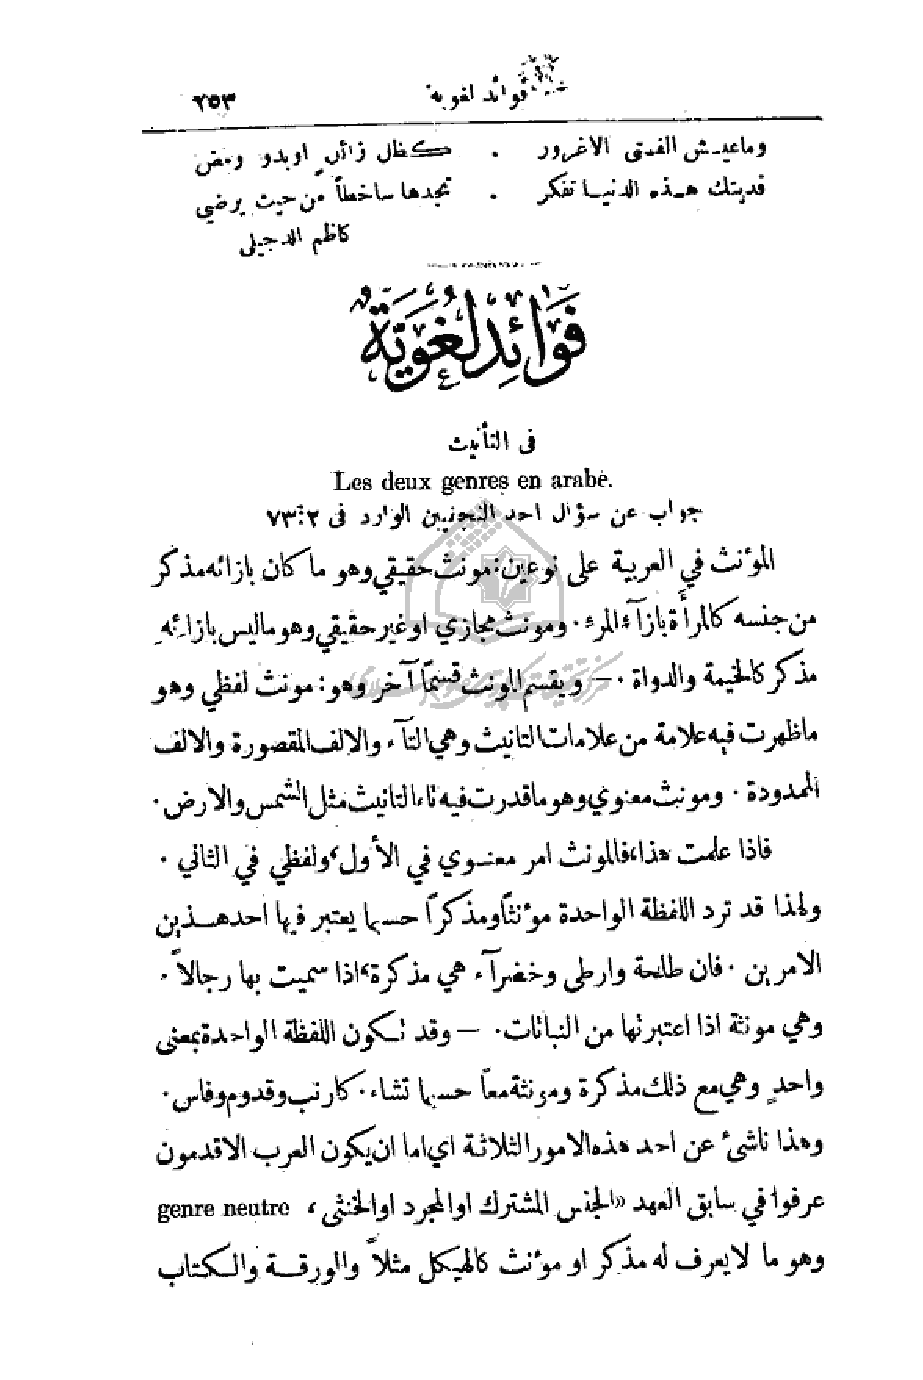 فوائد لغوية ٢٥٣
وما عيش الفتى الا غرور . كظل زائل او بدو ومض
فديتك هذه الدنيا تفكر . تجدها ساخطاً من حيث يرضي
كاظم الدجيلي
فَوَائِدُ لُغَوِيَّةٌ
في التأنيث
Les deux genres en arabe.
جواب عن سؤال احد النجفيين الوارد في ٢ : ٧٣
المؤنث في العربية على نوعين: مونث حقيقي وهو ما كان بازائه مذكر
من جنسه كالمرأة بازآء المرء. ومونث مجازي او غير حقيقي وهو ما ليس بازائه
مذكر كالخيمة والدواة. — ويقسم المونث قسمًا آخر وهو: مونث لفظي وهو
ما ظهرت فيه علامة من علامات التانيث وهي التآء والالف المقصورة والالف
الممدودة. ومونث معنوي وهو ما قدرت فيه تاء التانيث مثل الشمس والارض.
فاذا علمت هذا، فالمونث امر معنوي في الأول، ولفظي في الثاني.
ولهذا قد ترد اللفظة الواحدة مؤنثاً ومذكراً حسبما يعتبر فيها احد هذين
الامرين. فان طلحة وارطى وخضرآء هي مذكرة، اذا سميت بها رجالاً.
وهي مونثة اذا اعتبرتها من النباتات. — وقد تكون اللفظة الواحدة بمعنى
واحدٍ وهي مع ذلك مذكرة ومونثة معاً حسبما تشاء. كارنب وقدوم وفاس.
وهذا ناشئ عن احد هذه الامور الثلاثة اي اما ان يكون العرب الاقدمون
عرفوا في سابق العهد «الجنس المشترك او المجرد او الخنثى، genre neutre
وهو ما لا يعرف له مذكر او مؤنث كالهيكل مثلاً والورقة والكتاب